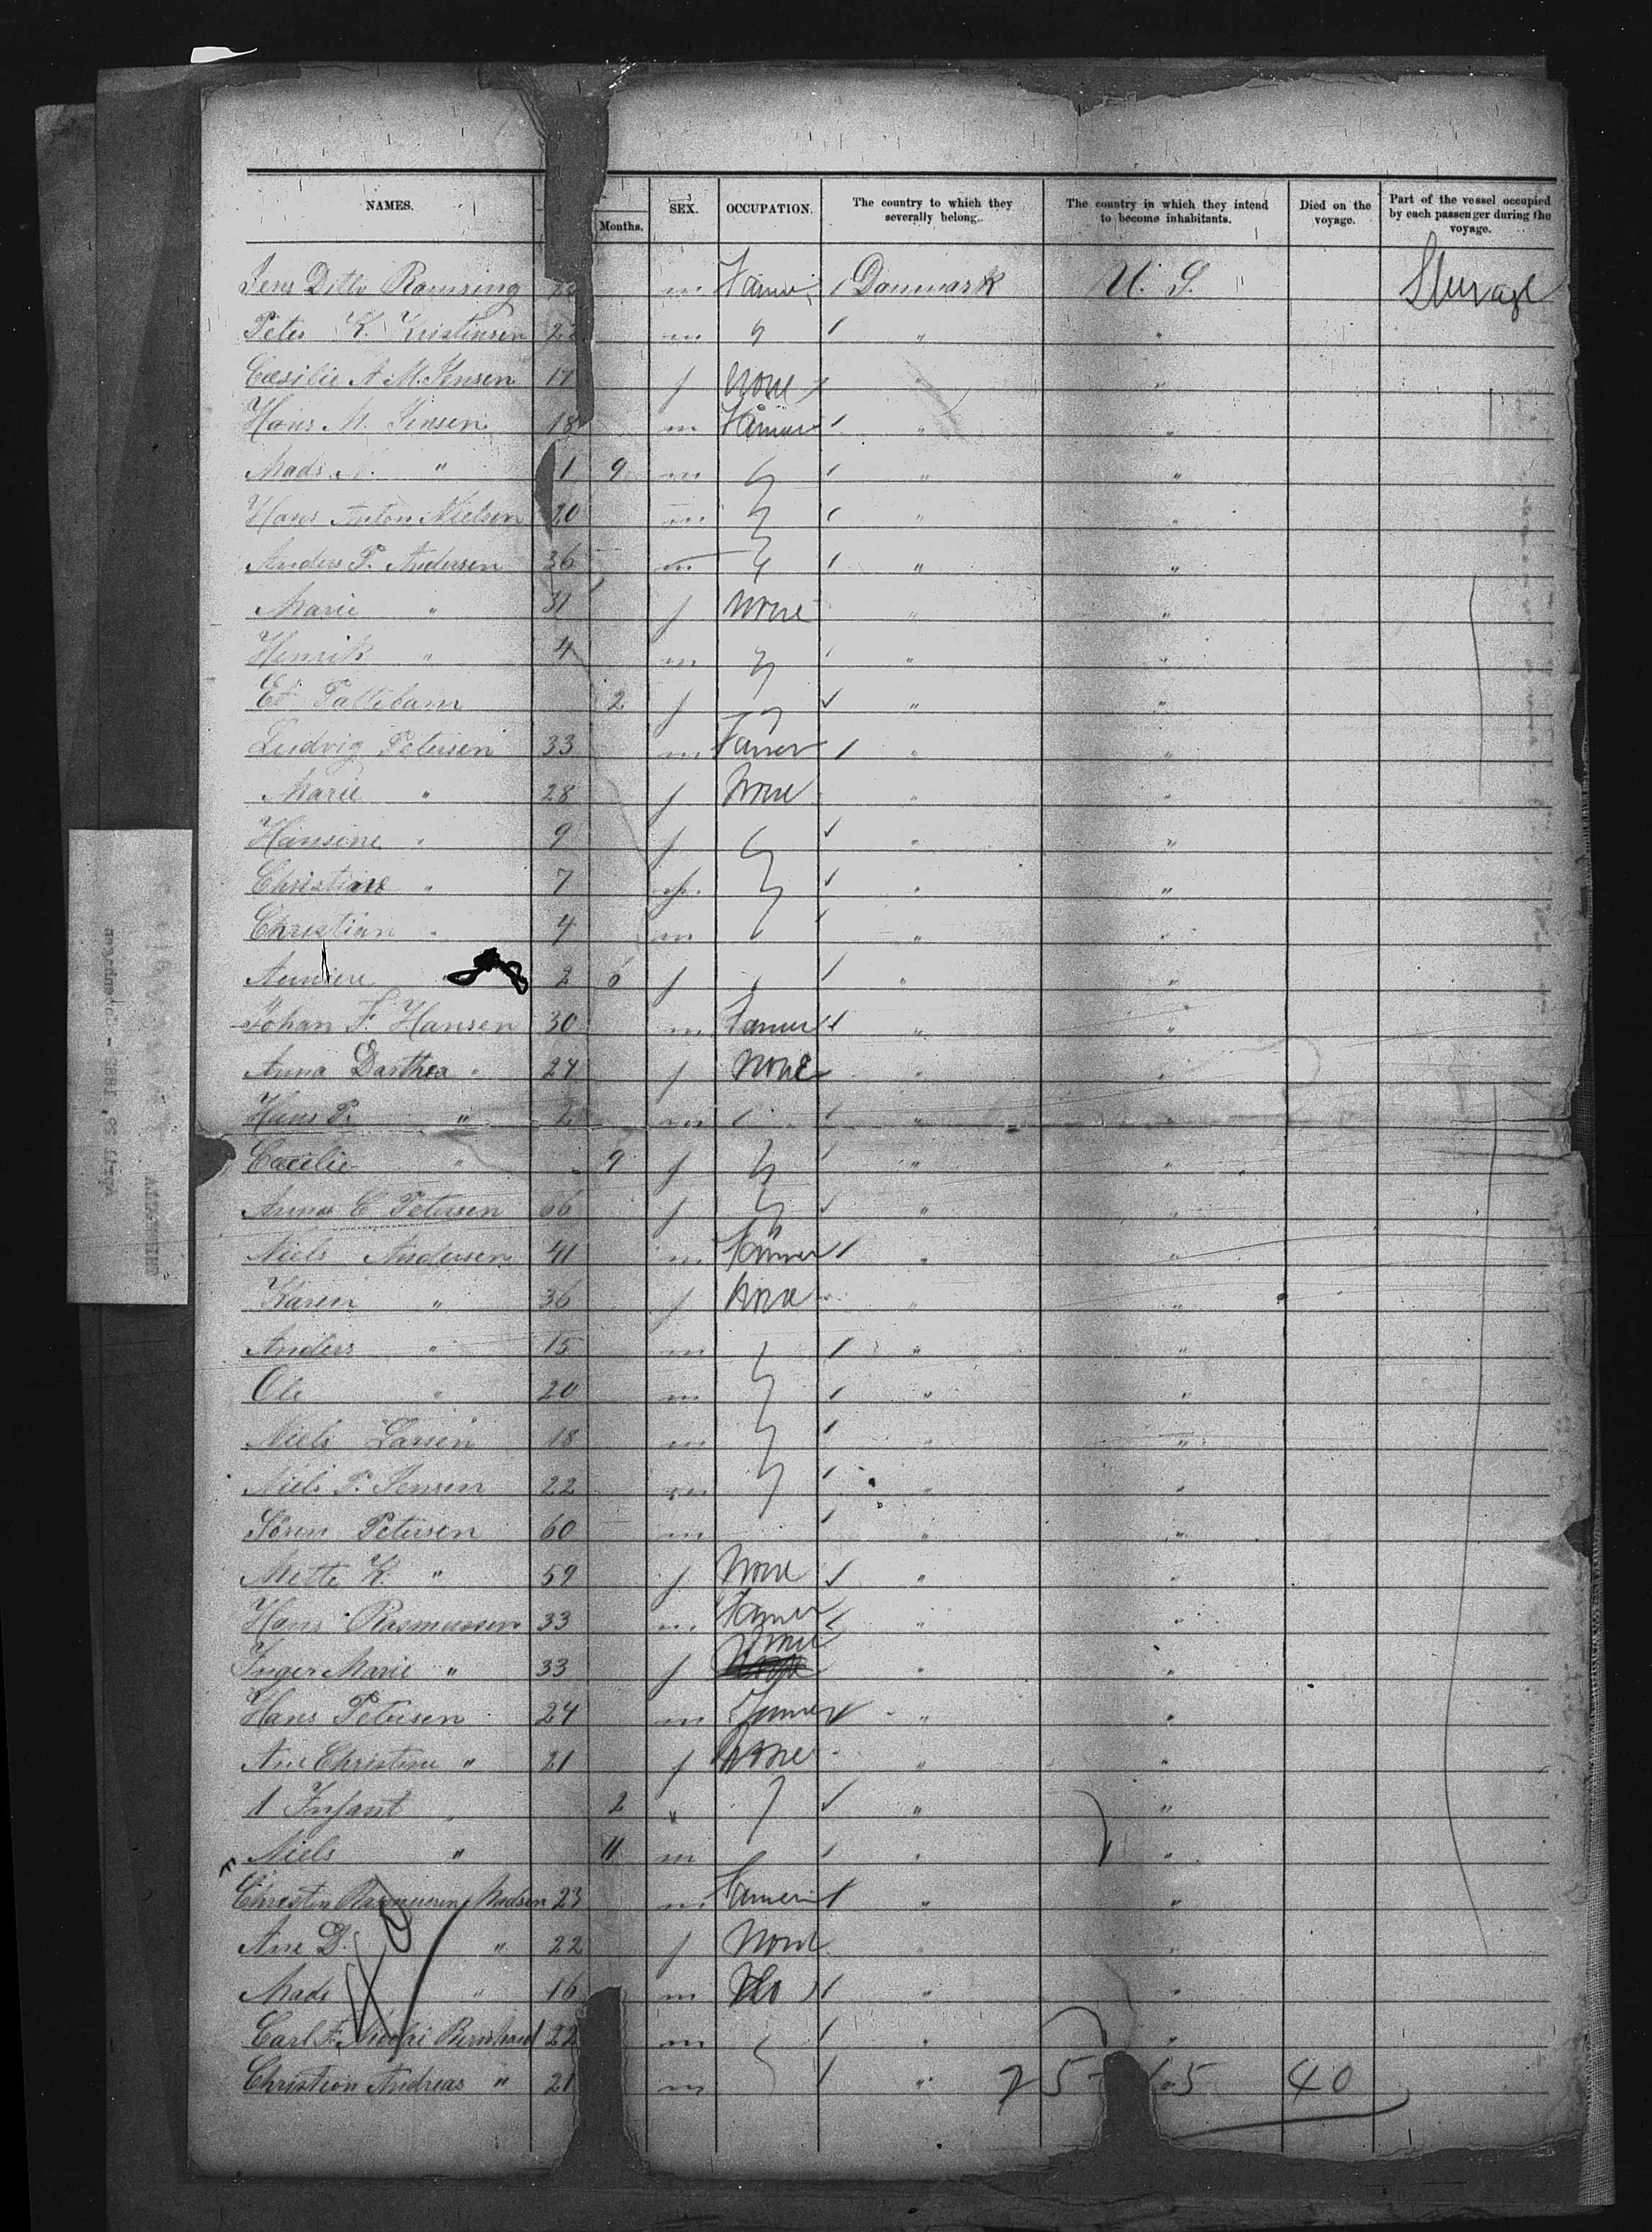 NAMES. Months. SEX. OCCUPATION. The country to which they severally belong. The country in which they intend to become inhabitants. Died on the voyage. Part of the vessel occupied by each passenger during the voyage.
Jens Ditlev Ramsing m Farmer Danmark U. S. Steerage
Peter K. Kristensen 22 m " "
Cæsilie A M. Jensen 17 f None " "
Hans M. Jensen 18 m Farmer " "
Mads N. " 1 9 m " "
Hans Anton Nielsen 20 m " "
Anders P. Andersen 36 m " "
Marie " 31 f None " "
Henrik " 4 m " "
Et Pattebarn 2 f " "
Ludvig Petersen 33 m Farmer " "
Marie " 28 f None " "
Hansine " 9 f " "
Christine " 7 f " "
Christian " 4 m " "
2 6 f " "
Johan F. Hansen 30 m Farmer " "
Anna Dorthea " 24 f None " "
Hans P. " 2 m " "
Cæcilie " 9 f " "
Anna C Petersen 66 f " "
Niels Andersen 41 m Farmer " "
Karen " 36 f None " "
Anders " 15 m " "
Ole " 20 m " "
Niels Larsen 18 m " "
Niels P. Jensen 22 m " "
Sören Petersen 60 m " "
Mette K. " 59 f None " "
Hans Rasmussen 33 m Farmer " "
Inger Marie " 33 f None " "
Hans Petersen 24 m Farmer " "
Ane Christine " 21 f None " "
1 Infant " 2 " "
Niels " 11 m " "
Christen Rasmussen Madsen 23 m Farmer " "
Ane D. " 22 f None " "
Mads " 16 m " "
Carl F. Nicolai Bernhard 22 m " "
Christian Andreas " 21 m "
25 15 40